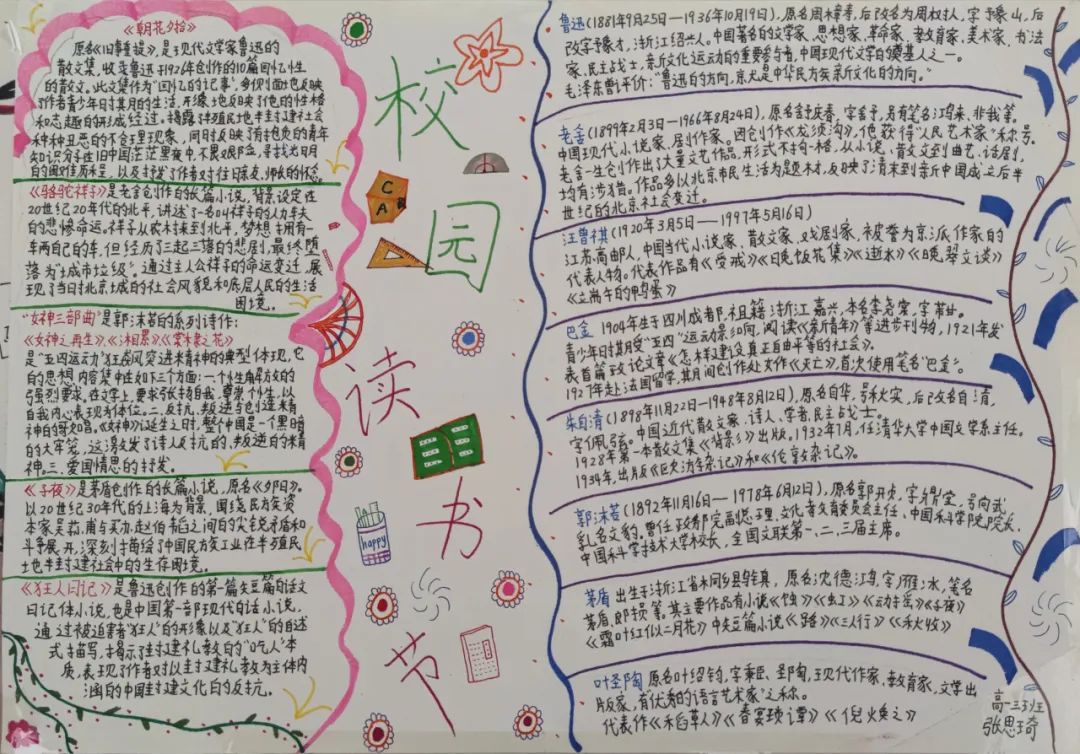 《朝花夕拾》
原名《旧事重提》,是现代文学家鲁迅的
散文集,收录鲁迅于1926年创作的10篇回忆性
的散文。此文集作为“回忆的记事”,多侧面地反映
了作者青少年时期的生活,形象地反映了他的性格
和志趣的形成经过。揭露了半殖民地半封建社会
种种丑恶的不合理现象,同时反映了有抱负的青年
知识分子在旧中国茫茫黑夜中,不畏艰险,寻找光明
的困难历程,以及抒发了作者对往日亲友、师长的怀念
《骆驼祥子》是老舍创作的长篇小说,背景设定在
20世纪20年代的北平,讲述了一名叫祥子的人力车夫
的悲惨命运。祥子从农村来到北平,梦想拥有一
车两自己的车,但经历了三起三落的悲剧,最终堕
落为“城市垃圾”。通过主人公祥子的命运变迁,展
现了当日北京城的社会风貌和底层人民的生活
困境.
“女神三部曲”是郭沫若的系列诗作:
《女神之再生》、《湘累》、《棠棣之花》
是“五四运动”狂飙突进精神的典型体现,它
的思想内容集中在如下三个方面:一个性解放的
强烈要求,在文学上,要求张扬自我,尊崇个性,以
自我内心表现为本位。二.反抗、叛逆与创造精
神的哥欠唱。《女神》诞生之时,整个中国是一个黑暗
的大牢笼,这激发了诗人反抗的、叛逆的精
神。三、爱国情思的抒发。
《子夜》是茅盾创作的长篇小说,原名《夕阳》。
以20世纪30年代的上海为背景,围绕民族资
本家吴荪甫与买办赵伯韬之间的尖锐矛盾和
斗争展开,深刻描绘了中国民族工业在半殖民
地半封建社会中的生存困境。
《狂人日记》是鲁迅创作的第一篇短篇白话文
日记体小说,也是中国第一部现代白话小说。
通过被迫害者“狂人”的形象以及“狂人”的自述
式描写,揭示了封建礼教的“吃人”本
质,表现了作者对以封建礼教为主体内
涵的中国封建文化的反抗。
校
园
读
书
节
C
A
B
happy
鲁迅(1881年9月25日—1936年10月19日),原名周樟寿,后改名为周树人,字豫山,后
改字豫才,浙江绍兴人。中国著名的文学家、思想家、革命家、教育家、美术家、书法
家、民主战士,新文化运动的重要参与者,中国现代文学的奠基人之一。
毛泽东曾评价:“鲁迅的方向,就是中华民族新文化的方向。”
老舍(1899年2月3日—1966年8月24日),原名舒庆春,字舍予,另有笔名鸿来、非我等。
中国现代小说家、剧作家。因创作《龙须沟》,他获得“人民艺术家”称号。
老舍一生创作出了大量文艺作品,形式不拘一格,从小说、散文文到曲艺、话剧,
均有涉猎。作品多以北京市民生活为题材,反映了清末到新中国成立后半
世纪的北京社会变迁。
汪曾祺(1920年3月5日—1997年5月16日)
江苏高邮人,中国当代小说家、散文家、戏剧家,被誉为京派作家的
代表人物。代表作品有《受戒》《晚饭花集》《逝水》《晚翠文谈》
《端午的鸭蛋》
巴金 1904年生于四川成都,祖籍浙江嘉兴,本名李尧棠,字芾甘。
青少年时期受“五四”运动影响,阅读《新青年》等进步刊物,1921年发
表首篇政论文章《怎样建设真正自由平等的社会》。
1927年赴法国留学,其间创作处女作《灭亡》,首次使用笔名“巴金”。
朱自清(1898年11月22日—1948年8月12日),原名自华,号秋实,后改名自清,
字佩弦。中国近代散文家、诗人、学者、民主战士。
1928年第一本散文集《背影》出版,1932年7月,任清华大学中国文学系主任。
1934年,出版《欧游杂记》和《伦敦杂记》。
郭沫若(1892年11月16日—1978年6月12日),原名郭开贞,字鼎堂,号尚武,
乳名文豹。曾任政务院副总理、文化教育委员会主任、中国科学院院长、
中国科学技术大学校长,全国文联第一、二、三届主席。
茅盾 出生于浙江省桐乡县乌镇,原名沈德鸿,字雁冰,笔名
茅盾、郎损等。其主要作品有小说《蚀》《虹》《动摇》《子夜》
《霜叶红似二月花》中短篇小说《路》《三人行》《秋收》
叶圣陶 原名叶绍钧,字秉臣、圣陶,现代作家、教育家,文学出
版家,有“优秀的语言艺术家”之称。
代表作《稻草人》《春宴琐谭》《倪焕之》
高一3班
张思琦